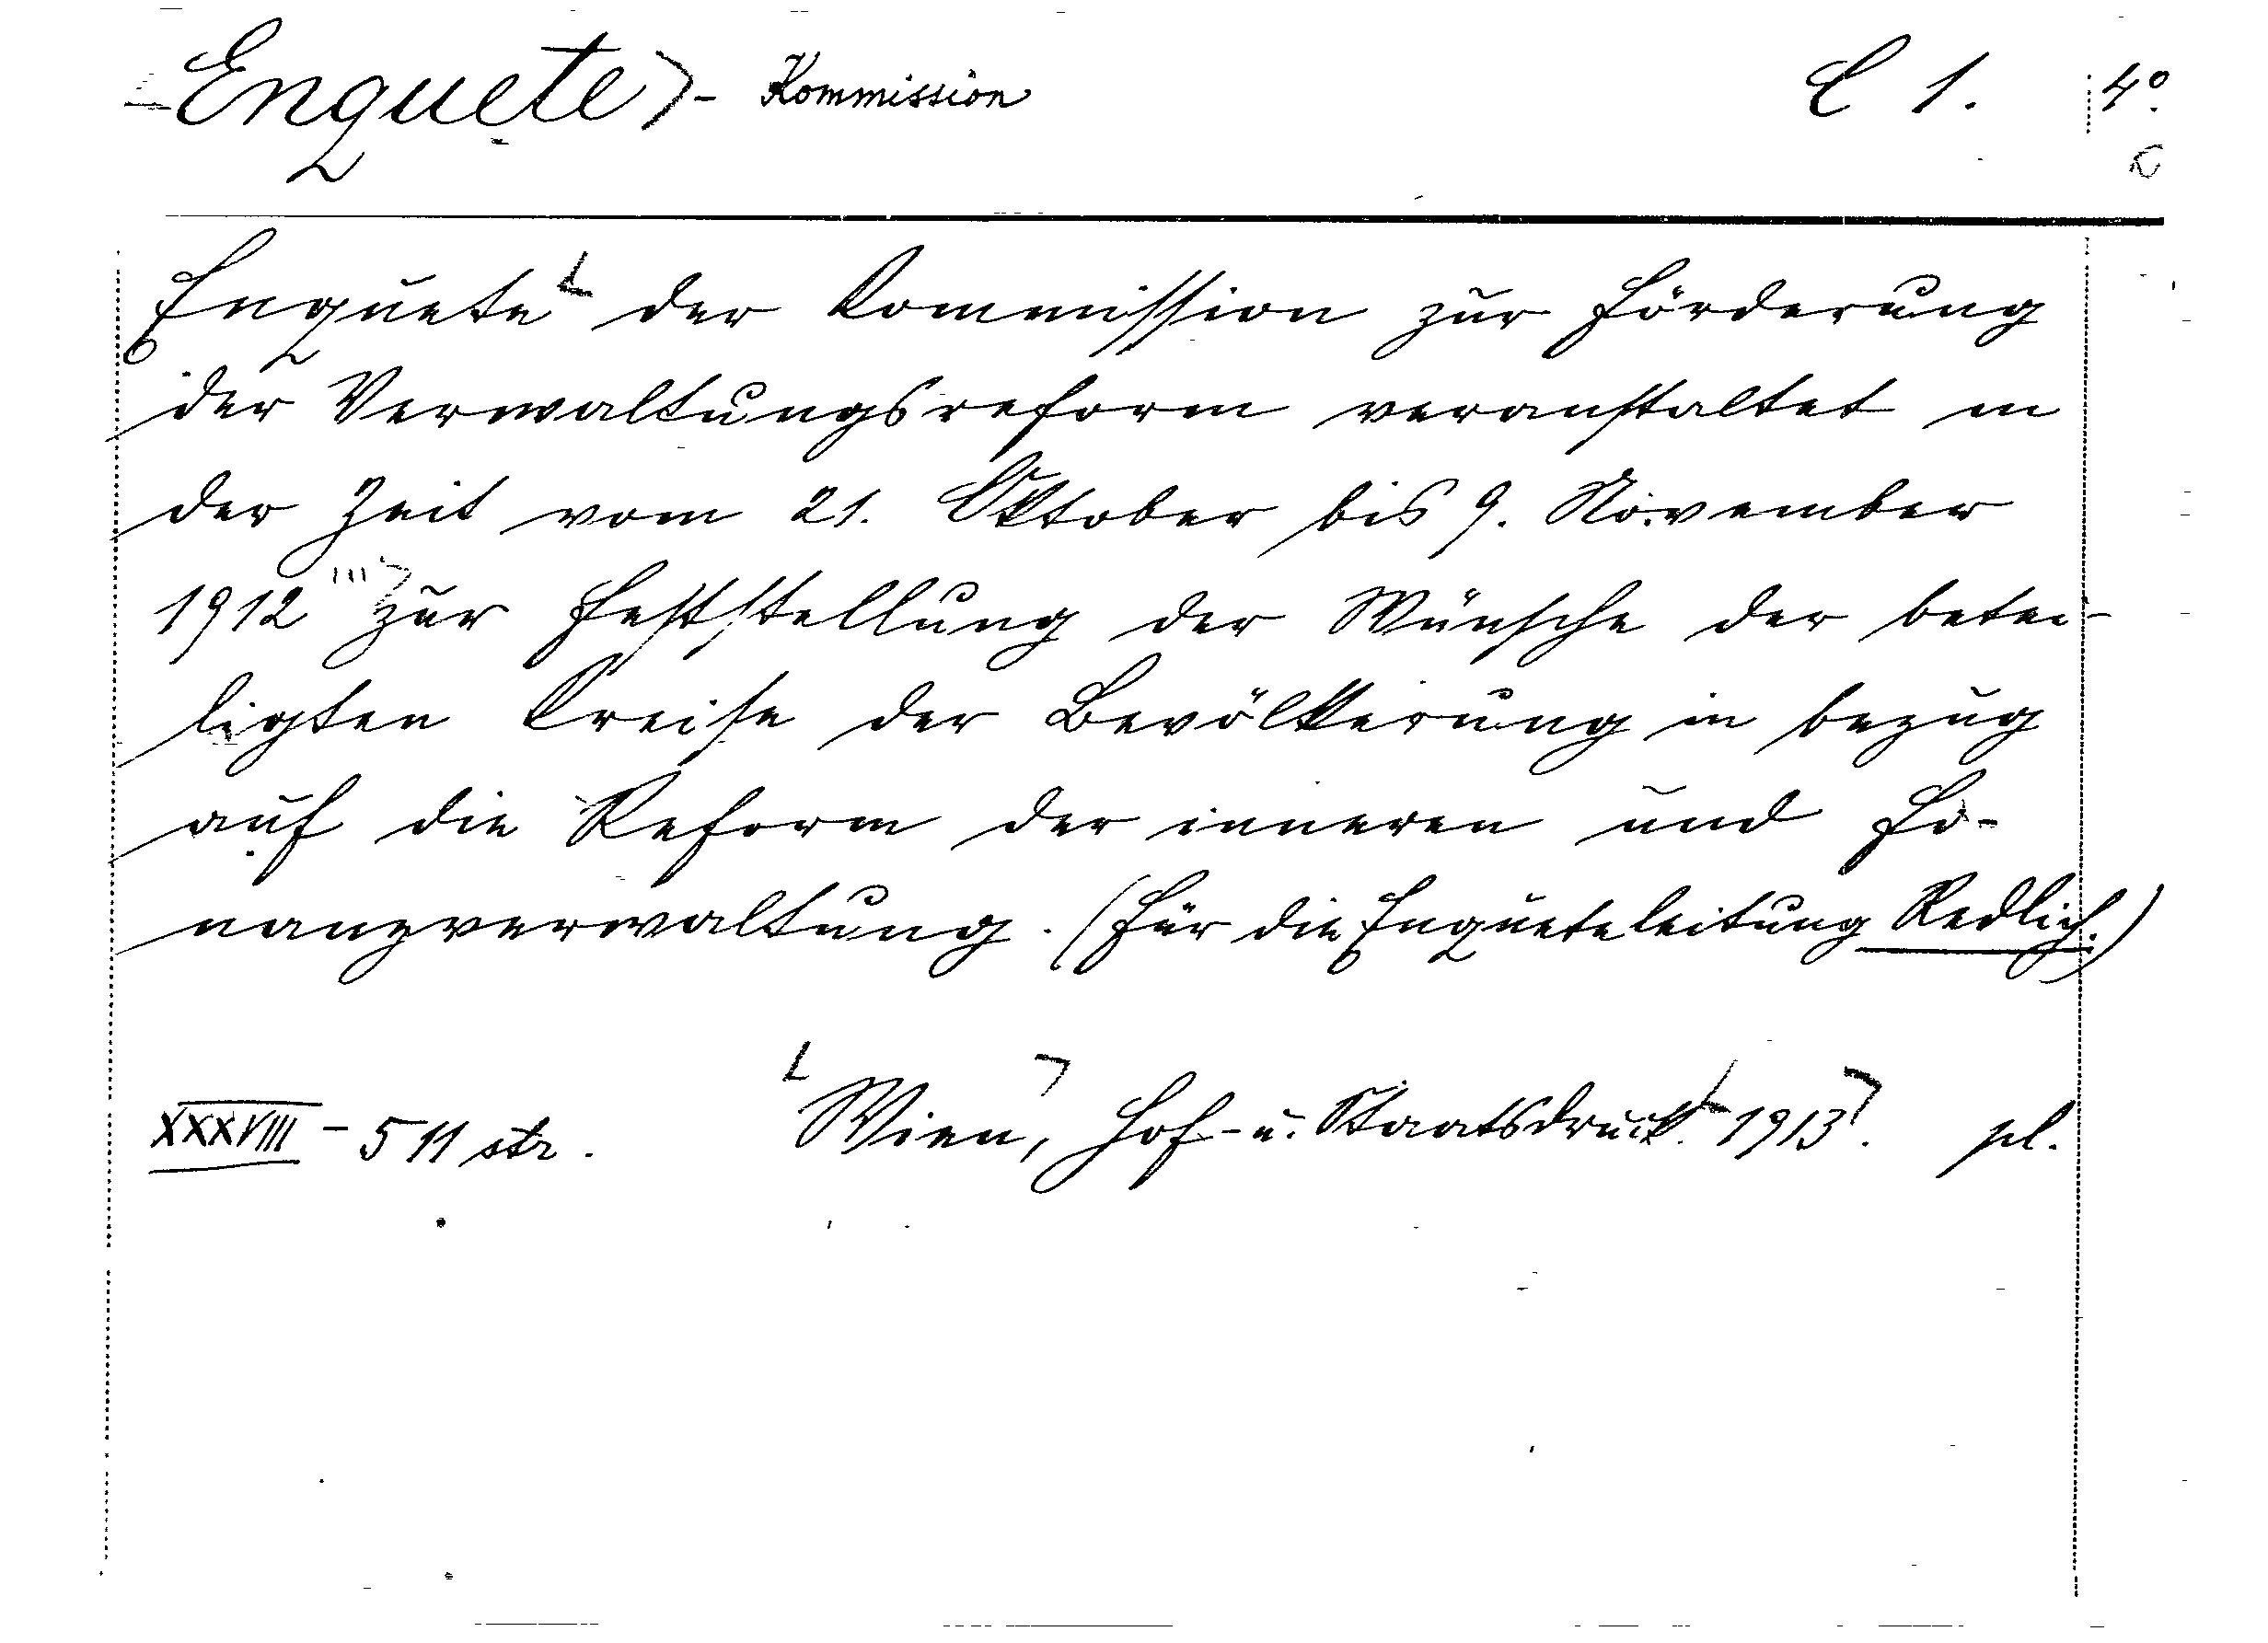 Enquete - Kommission C 1. 4°.
Enquete der Kommission zur Förderung
der Verwaltungsreform veranstaltet in
der Zeit vom 21. Oktober bis 9. November
1912 zur Feststellung der Wünsche der betei-
ligten Kreise der Bevölkerung in bezug
auf die Reform der inneren und Fi-
nanzverwaltung. (Für die Enqueteleitung Redlich.)
XXXVIII - 511 str. Wien, Hof- u. Staatsdruck. 1913. pl.